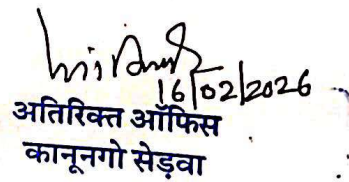 16/02/2026
अतिरिक्त ऑफिस
कानूनगो सेड़वा